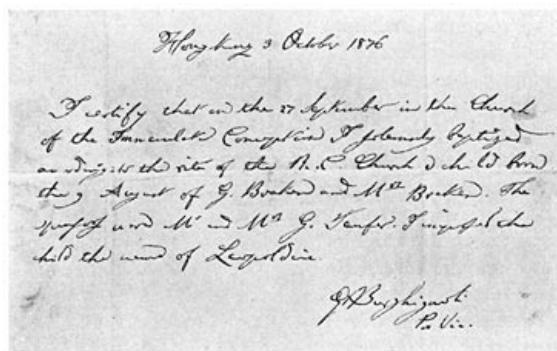 Hongkong 3 October 1876
I certify that on the 27 September in the Church
of the Immaculate Conception I solemnly baptized
according to the rite of the R. C. Church a child born
the 9 August of G. and Mrs. The
were Mr and Mrs G. I imposed the
child the name of Leopoldine.
Pro Vic.